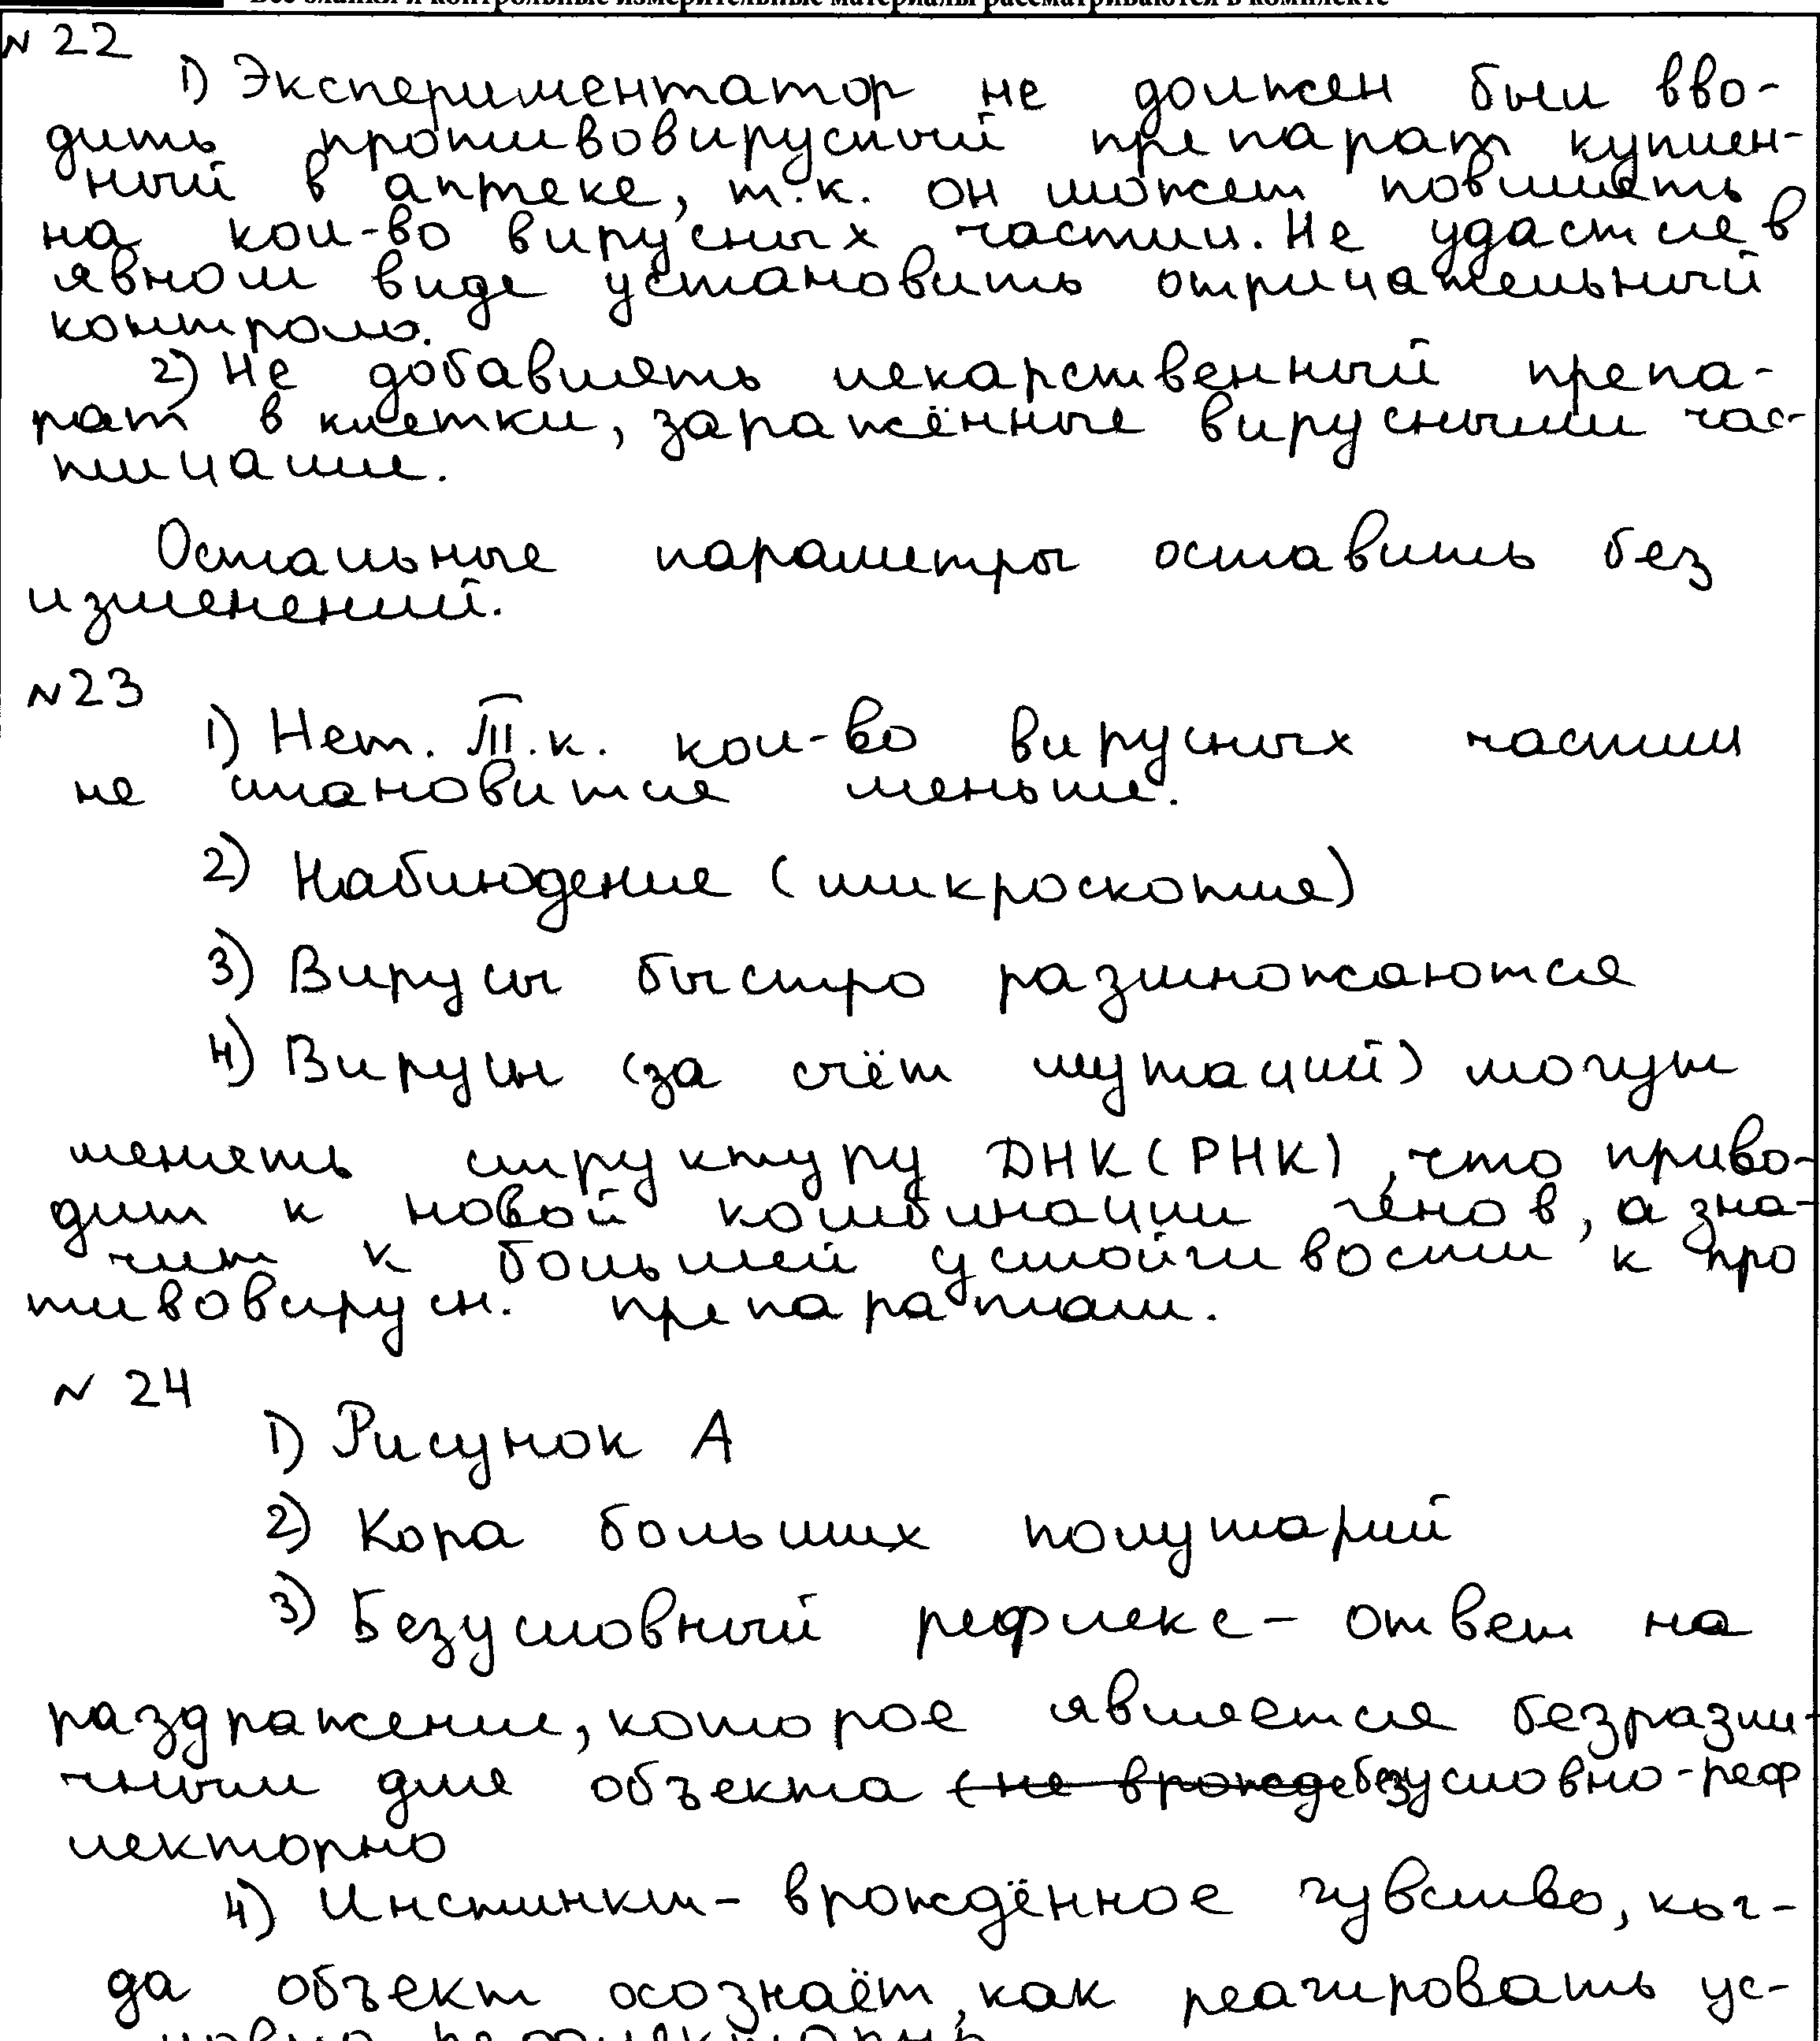 Все бланки и контрольные измерительные материалы рассматриваются в комплекте
№ 22
1) Экспериментатор не должен был вво-
дить противовирусный препарат куплен-
ный в аптеке, т.к. он может повлиять
на кол-во вирусных частиц. Не удастся в
явном виде установить отрицательный
контроль.
2) Не добавлять лекарственный препа-
рат в клетки, заражённые вирусными час-
тицами.
Остальные параметры оставить без
изменений.
№23
1) Нет. Т.к. кол-во вирусных частиц
не становится меньше.
2) Наблюдение (микроскопия)
3) Вирусы быстро размножаются
4) Вирусы (за счёт мутаций) могут
менять структуру ДНК(РНК), что приво-
дит к новой комбинации генов, а зна-
чит к большей устойчивости к про
тивовирусн. препаратам.
№ 24
1) Рисунок А
2) Кора больших полушарий
3) Безусловный рефлекс - ответ на
раздражение, которое является безразли-
чным для объекта безусловно-реф
лекторно
4) Инстинкт - врождённое чувство, ког-
да объект осознаёт, как реагировать ус-